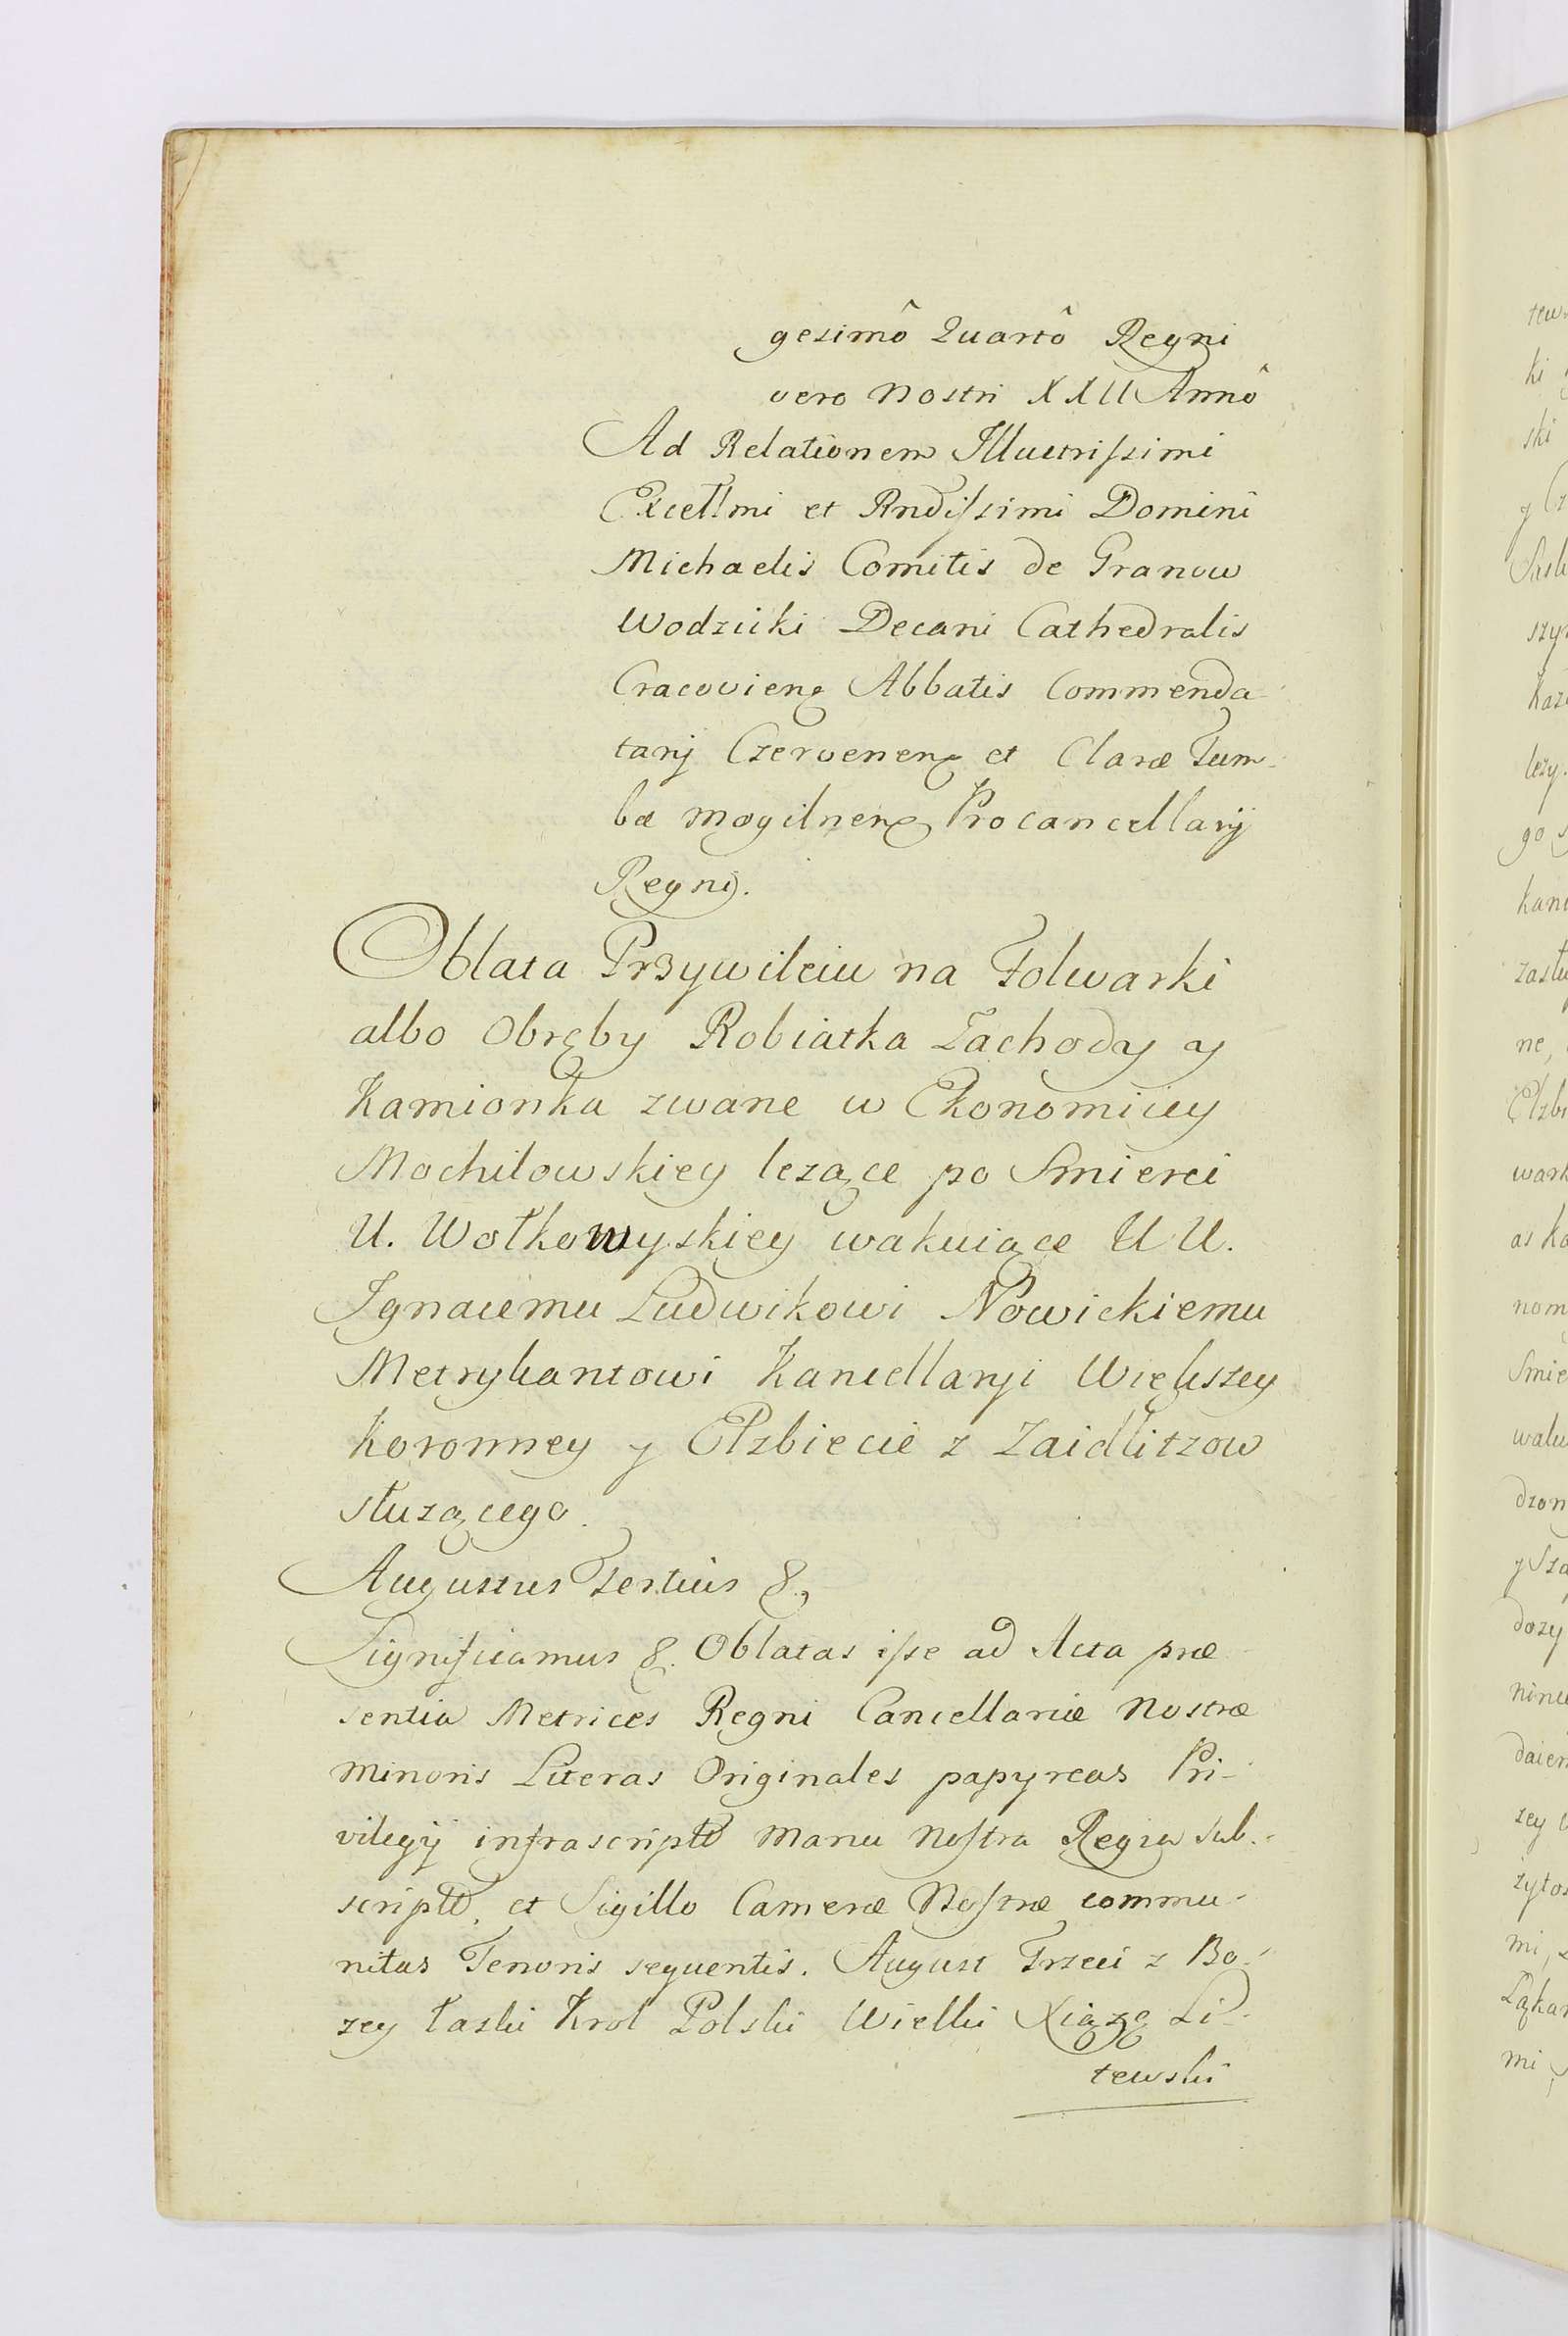 gesimô Quartô Regni
vero Nostri XXII Annô
Ad Relationem Illustrissimi
Excellmi et Rndissimi Domini
Michaelis Comitis de Granow
Wodzicki Decani Cathedralis
Cracovien Abbatis Commenda-
tarij Czervenen et Claræ Tum-
bæ Mogilnen Procancellarij
Regni.
Oblata Przywileiu na Folwarki
albo Obręby Robiatka Zachody y
Kamionka zwane w Ekonomicey
Mochilowskiey lezące po Smierci
U. Wołkowyskiey wakuiące U U.
Ignacemu Ludwikowi Nowickiemu
Metrykantowi Kancellaryi Większey
Koronney y Elzbiecie z Zaidlitzow
słuzącego.
Augustus Tertius &
Significamus &. Oblatas isse ad Acta præ
sentia Metrices Regni Cancellariæ Nostræ
Minoris Literas Originales papyreas Pri-
vilegij infrascripti Manu Nostra Regia sub-
scriptas, et Sigillo Cameræ Nostræ commu-
nitas Tenoris sequentis. August Trzeci z Bo-
zey łaski Krol Polski Wielki Xiązę Li-
tewski